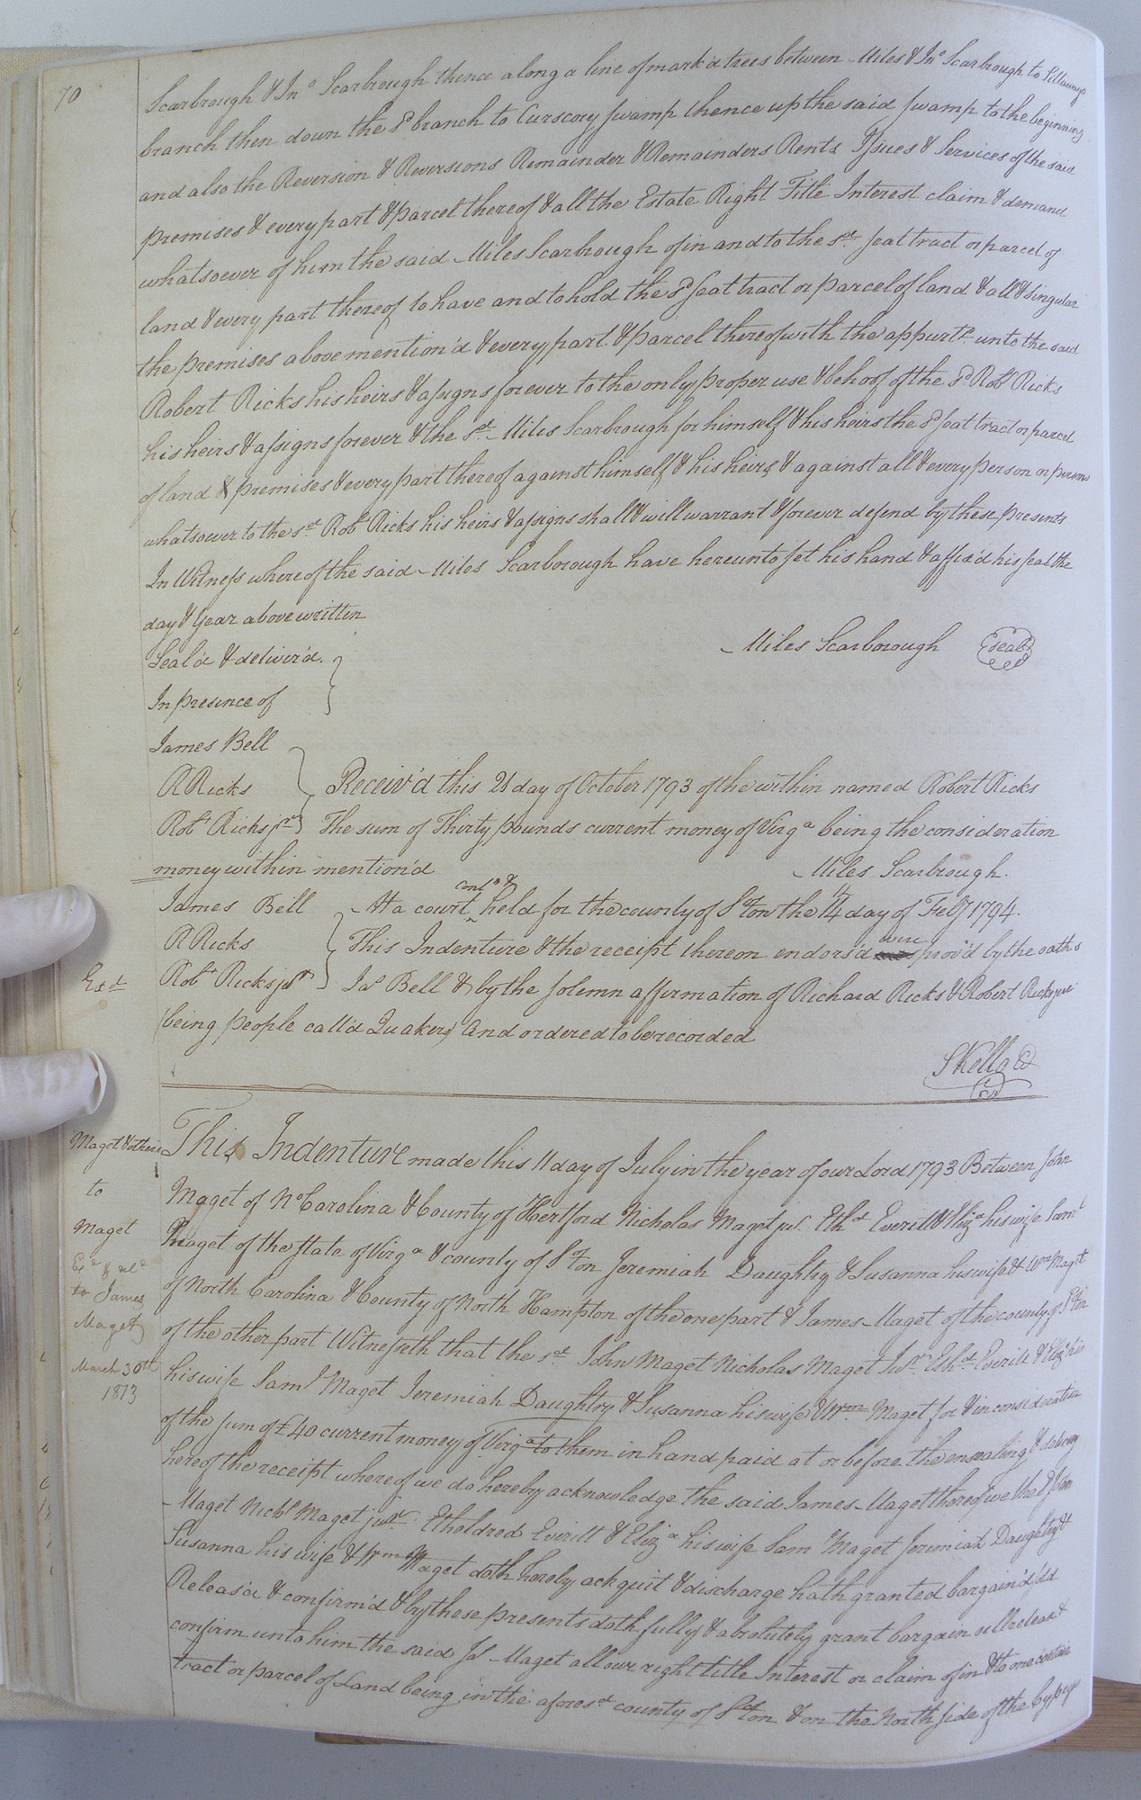 70
Scarbrough & Jno Scarbrough thence along a line of mark'd trees between Miles & Jno Scarbrough to
branch then down the sd branch to Curscory swamp thence up the said swamp to the beginning
and also the Reversion & Reversions Remainder & Remainders Rents Issues & Services of the said
premises & every part & parcel thereof & all the Estate Right Title Interest claim & demand
whatsoever of him the said Miles Scarbrough of in and to the sd seat tract or parcel of
land & every part thereof to have and to hold the sd seat tract or parcel of land & all & singular
the premises above mention'd & every part & parcel thereof with the appurts unto the said
Robert Ricks his heirs & assigns forever to the only proper use & behoof of the sd Robt Ricks
his heirs & assigns forever & the sd Miles Scarbrough for himself & his heirs the sd seat tract or parcel
of land & premises & every part thereof against himself & his heirs & against all & every person or persons
whatsoever to the sd Robt Ricks his heirs & assigns shall & will warrant & forever defend by these presents
In Witness whereof the said Miles Scarborough have hereunto set his hand & affix'd his seal the
day & year above written
Miles Scarborough (seal)
Seal'd & deliver'd
In presence of
James Bell
R Ricks
Receiv'd this 21 day of October 1793 of the within named Robert Ricks
Robt Ricks jnr
The sum of Thirty pounds current money of Virga being the consideration
money within mention'd
Miles Scarbrough.
James Bell
At a court contd & held for the county of Sºton the 14 day of Feby 1794.
R Ricks
This Indenture & the receipt thereon endors'd were prov'd by the oath of
Exd
Robt Ricks jnr
Jas Bell & by the solemn affirmation of Richard Ricks & Robert Ricks jnr
(being people call'd Quakers) And ordered to be recorded
S Kello Cl
Cur
Maget & others
to
Maget
Exd & deld
to James
Maget
March 30th
1813
This Indenture made this 11 day of July in the year of our Lord 1793 Between John
Maget of No Carolina & County of Hertford Nicholas Maget jur. Ethd Everitt & Eliza his wife Saml
Maget of the State of Virga & county of Sºton Jeremiah Daughtry & Susanna his wife & Wm Maget
of North Carolina & County of North Hampton of the one part & James Maget of the county of Sºton
of the other part Witnesseth that the sd John Maget Nicholas Maget Jur. Ethd Everitt & Eliz his
his wife Saml Maget Jeremiah Daughtry & Susanna his wife & Wm Maget for & in consideration
of the sum of £40 current money of Virga to them in hand paid at or before the ensealing & delivery
hereof the receipt whereof we do hereby acknowledge the said James Maget thereof we the sd Jon
Maget Nichs Maget junr Etheldred Everitt & Eliza his wife Saml Maget Jeremiah Daughtry &
Susanna his wife & Wm Maget doth hereby ackquit & discharge hath granted bargain'd sold
Releas'd & confirm'd & by these presents doth fully & absolutely grant bargain sell release &
confirm unto him the said Js Maget all our right title Interest or claim of in & to one certain
tract or parcel of Land being in the aforesd county of Sºton & on the North side of the